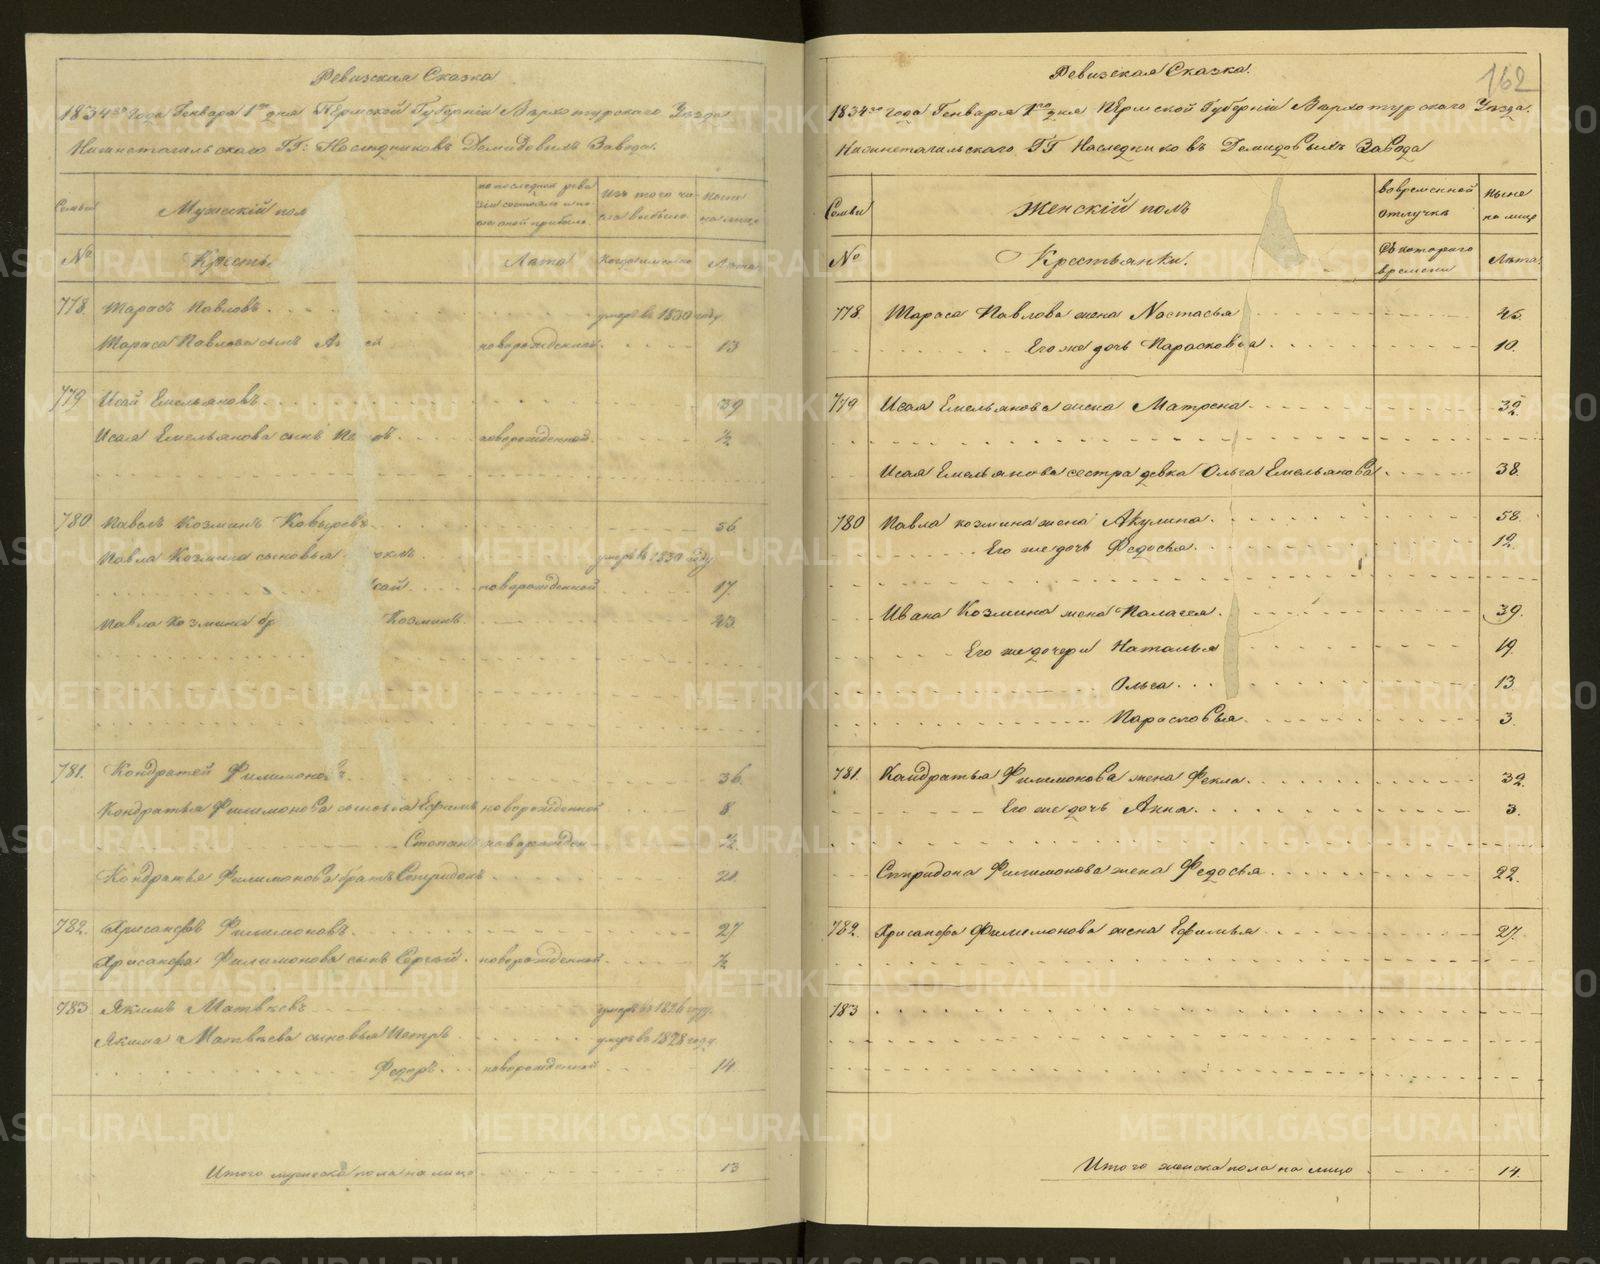 Ревизская Сказка
1834го года Генваря 1го дня Пермской Губернiи Верхотурского Уезда
Нижнетагильскаго ГГ: Наследниковъ Демидовыхъ Завода.
Семьи
Мужескiй полъ
по последней ревизiи состояло и после оной прибыло
Изъ того числа выбыло
Ныне на лице
№
Кресть
Лета
Когда именно
Лета
778. Тарасъ Павловъ умеръ въ 1830 году
Тараса Павлова сынъ новорожденной 13
779 Исай Емельяновъ 39
Исая Емельянова сынъ новорожденной ½
780 Павелъ Козминъ Ковыревъ 56
Павла Козмина сыновья умеръ въ 1830 году
сай новорожденной 17.
Павла Козмина бр Козминъ 43.
781. Кондратей Филимоновъ 36.
Кондратья Филимонова сыновья Ефимъ новорожденной 8
Степанъ новорожден ½
Кондратья Филимонова братъ Спиридонъ 21.
782. Хрисанфъ Филимоновъ 27
Хрисанфа Филимонова сынъ Сергъй новорожденной ½
783 Якимъ Матвъевъ умеръ въ 1826 году.
Якима Матвъева сыновья Петръ умеръ въ 1828 году.
Федоръ новорожденной 14
Итого мужеска пола на лицо 13
162
Ревизская Сказка.
1834го года Генваря 1го дня Пермской Губернiи Верхотурскаго Уъзда.
Нижнетагильскаго ГГ Наследниковъ Демидовыхъ Завода
Семьи
Женскiй полъ
во временной отлучке
ныне на лице
№
Крестьянки.
Съ котораго времени
Лъта
778. Тараса Павлова жена Настасья 45.
Его же дочь Парасковья 10.
779 Исая Емельянова жена Матрена 32.
Исая Емельянова сестра девка Ольга Емельянова 38.
780 Павла козмина жена Акулина 58.
Его же дочь Федосья 12.
Ивана Козмина жена Палагея 39.
Его же дочери Наталья 19.
Ольга 13
Парасковья 3.
781. Кондратья Филимонова жена Фекла 32.
Его же дочь Анна 3.
Спиридона Филимонова жена Федосья 22.
782. Хрисанфа Филимонова жена Ефимья 27.
783
Итого женска пола на лицо 14.
METRIKI.GASO-URAL.RU